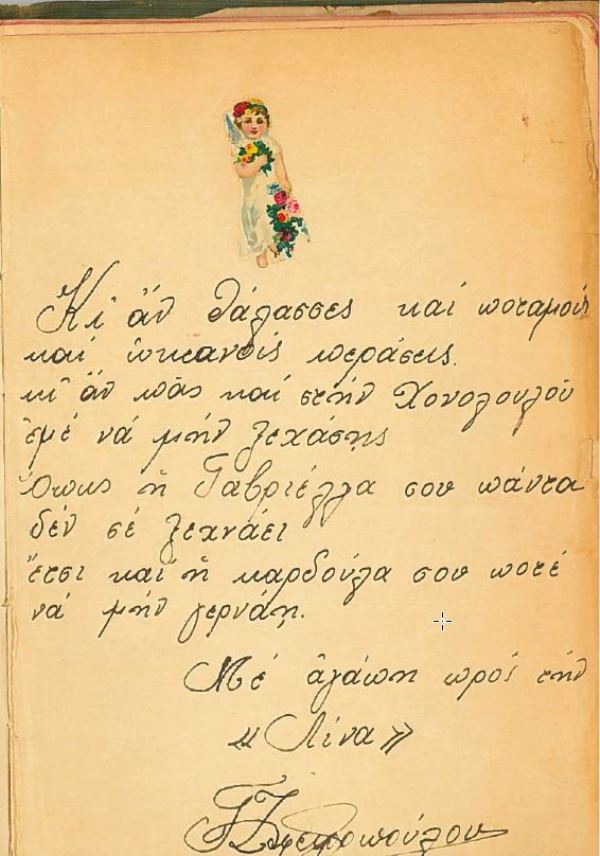 Κι' ἄν θάλασσες καί ποταμούς
καί ὠκεανούς περάσεις.
κι' ἄν πᾶς καί στήν Χονολουλοῦ
ἐμέ νά μήν ξεχάσῃς
Ὅπως ἡ Γαβριέλλα σου πάντα
δέν σέ ξεχνάει
ἔτσι καί ἡ καρδούλα σου ποτέ
νά μήν γερνάῃ.
Μέ ἀγάπη πρός τήν
«Λίνα»